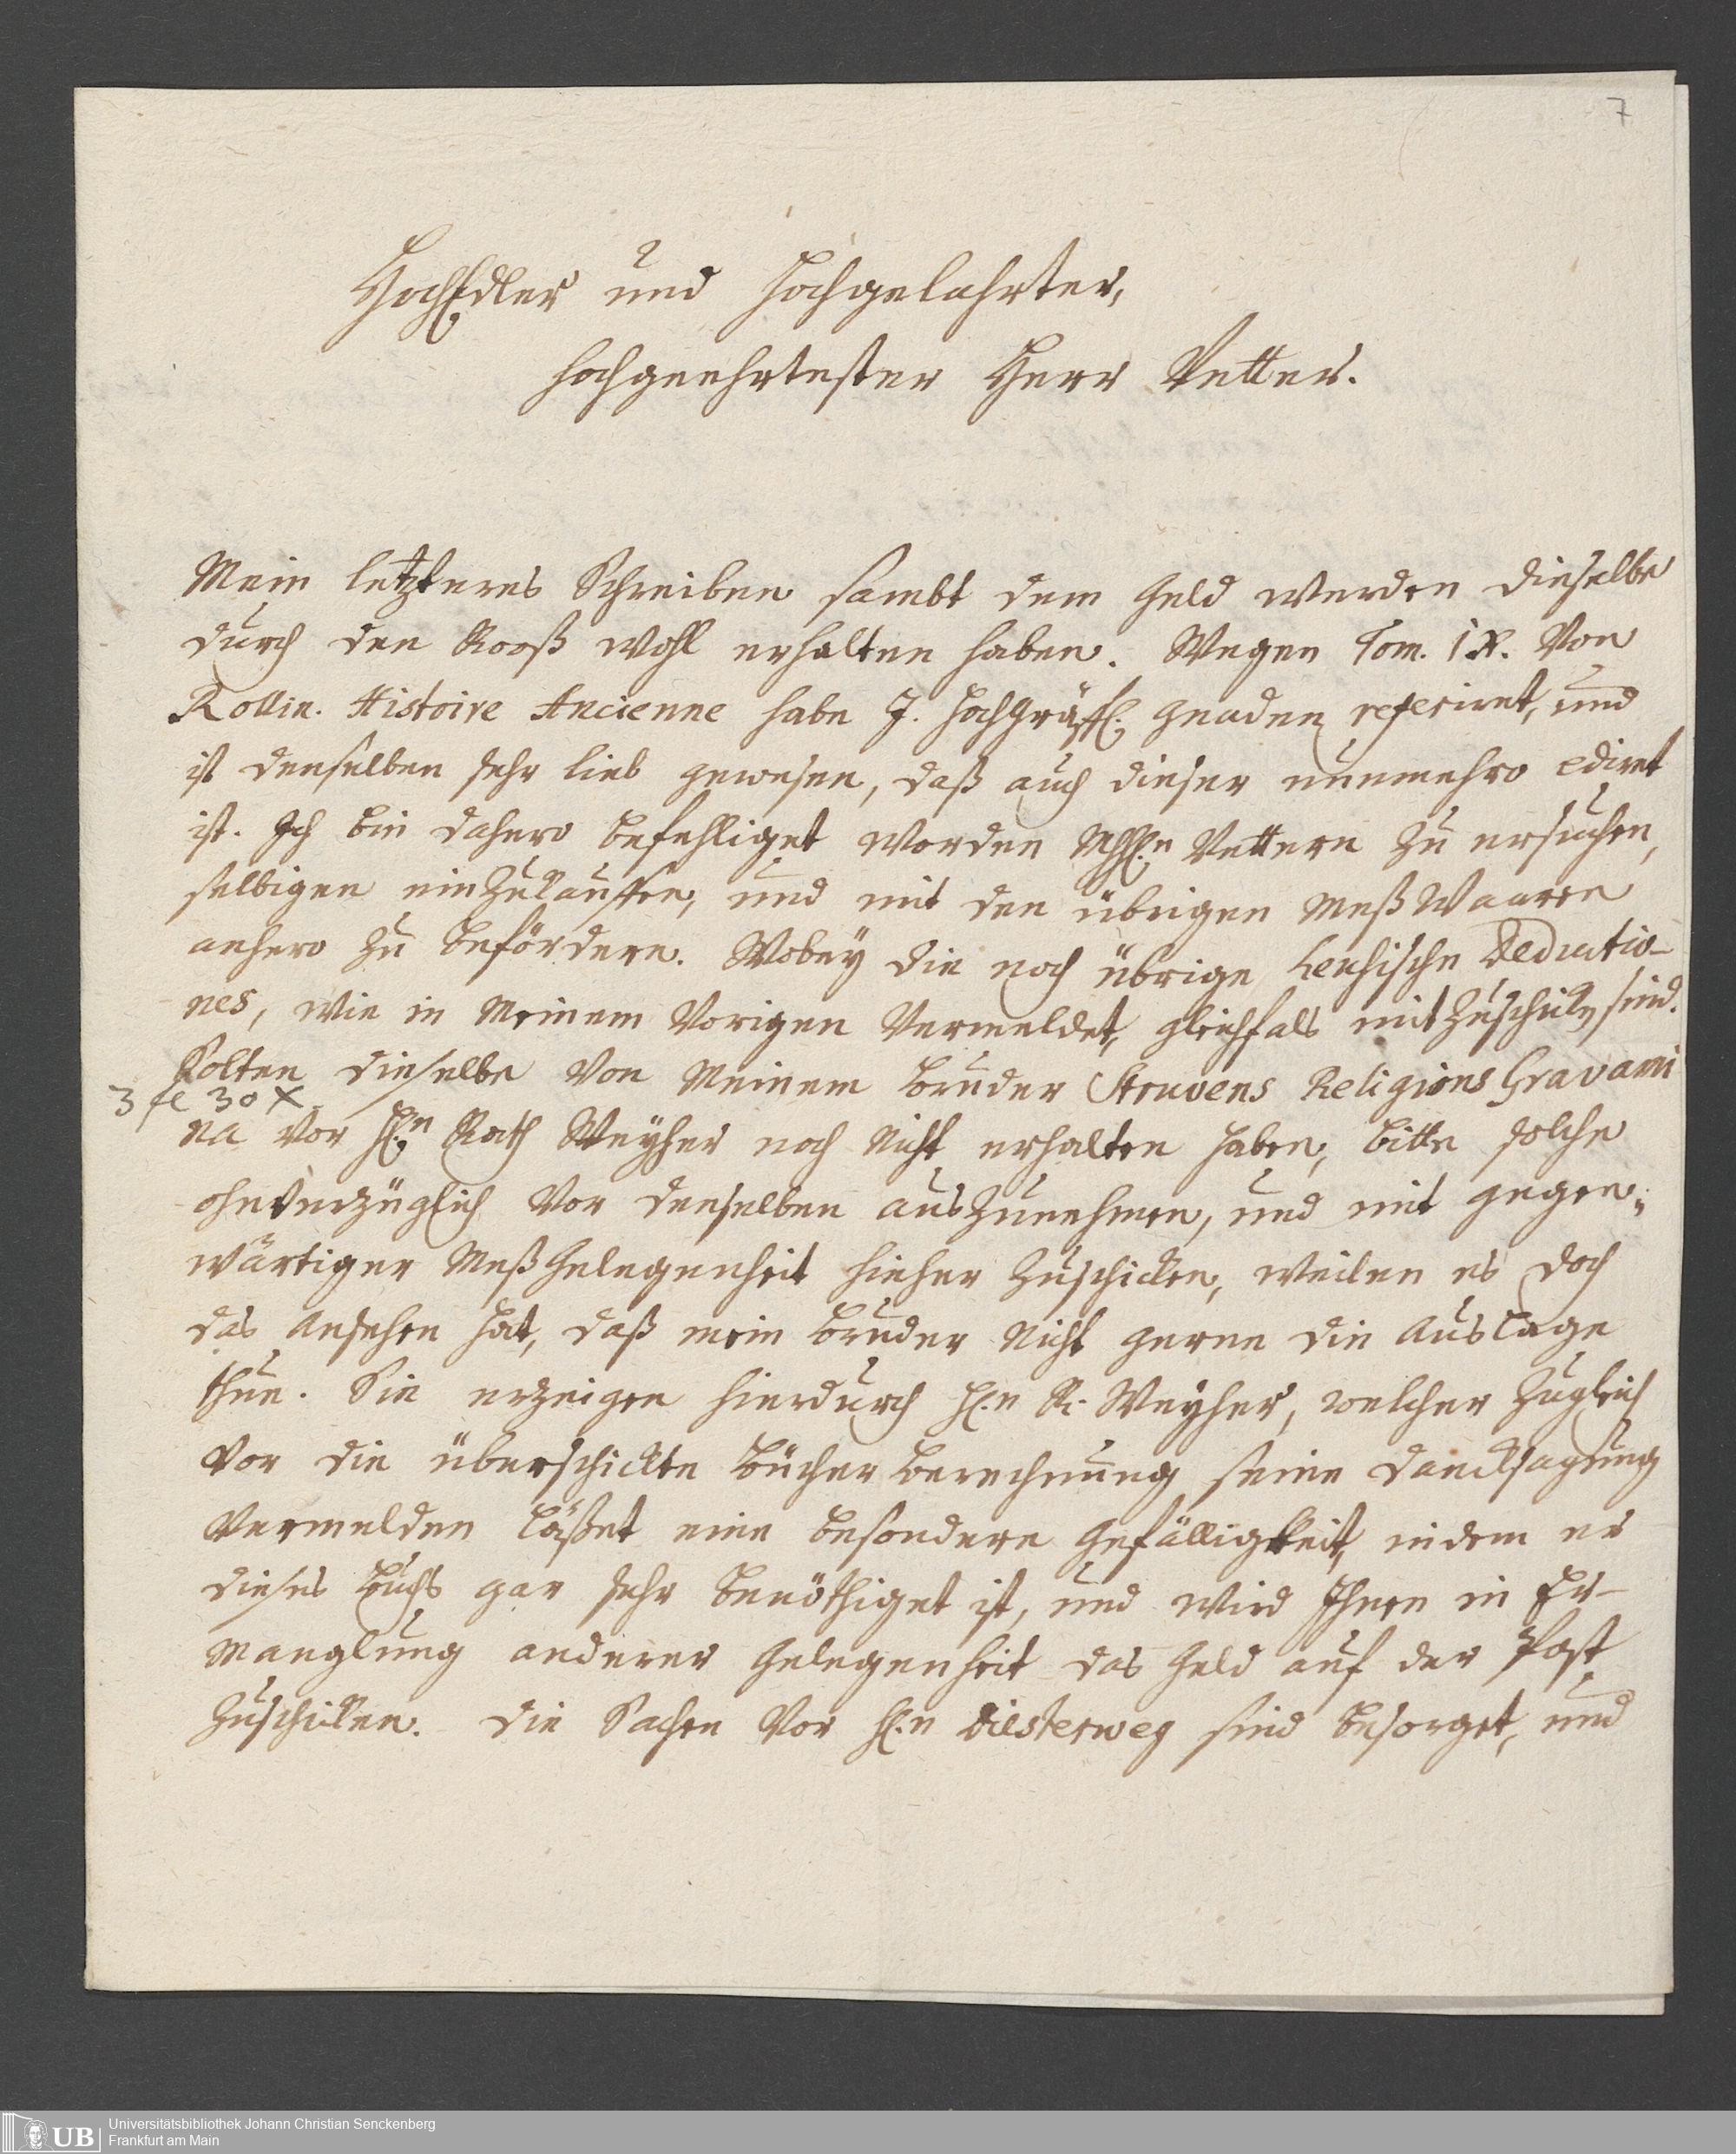 7
HochEdler und Hochgelahrter,
Hochgeehrtester Herr Vetter.
Mein letzteres Schreiben sambt dem Geld werden dieselbe
durch den Rooß wohl erhalten haben. Wegen Tom. IX. Von
Rollin. Histoire Ancienne habe J. HochGräffl. Gnaden referiret, und
ist denselben sehr lieb gewesen, daß auch dieser nunmehro ediret
ist. Ich bin dahero befehliget worden MhhEn Vettern zu ersuchen,
selbigen einzukauffen, und mit den übrigen MeßWaaren
anhero zu befördern. Wobey die noch übrige Deductio-
nes, wie in Meinem Vorigen Vermeldet, gleichfals mitzuschicken sind.
Solten dieselbe Von Meinem Bruder Struvens Religions Gravami
3 fl 30 x
na vor H.n Rath Weyher noch nicht erhalten haben, bitte solche
ohnverzüglich Vor denselben auszunehmen, und mit gegen-
wärtiger MeßGelegenheit hieher zuschicken, weilen es doch
das Ansehen hat, daß mein Bruder nicht gerne die Auslage
thue. Sie erzeigen hierdurch H.n R. Weyher, welcher zugleich
Vor die überschickte Bücher Berechnung seine Dancksagung
Vermelden läßet eine besondere Gefälligkeit, indem er
dieses Buchs gar sehr benöthiget ist, und wird Ihnen in Er-
manglung anderer Gelegenheit das Geld auf der Post
zuschicken. Die Sachen Vor H.n Diesterweg sind besorget, und
UB Universitätsbibliothek Johann Christian Senckenberg
Frankfurt am Main